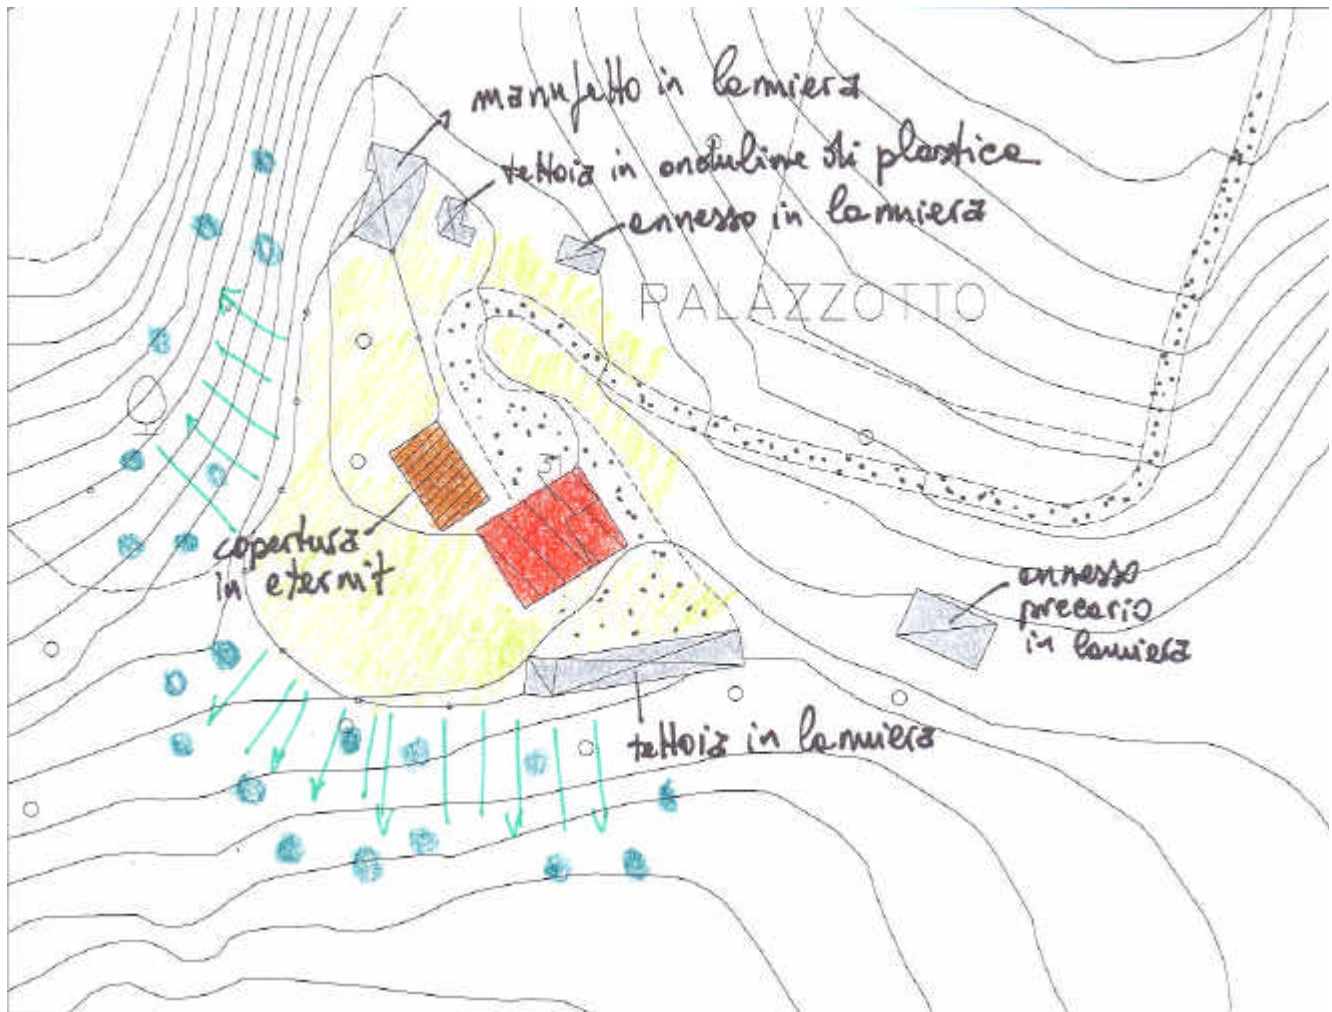 manufatto in lamiera
tettoia in ondulina di plastica
annesso in lamiera
PALAZZOTTO
31
copertura
in eternit
annesso
precario
in lamiera
tettoia in lamiera